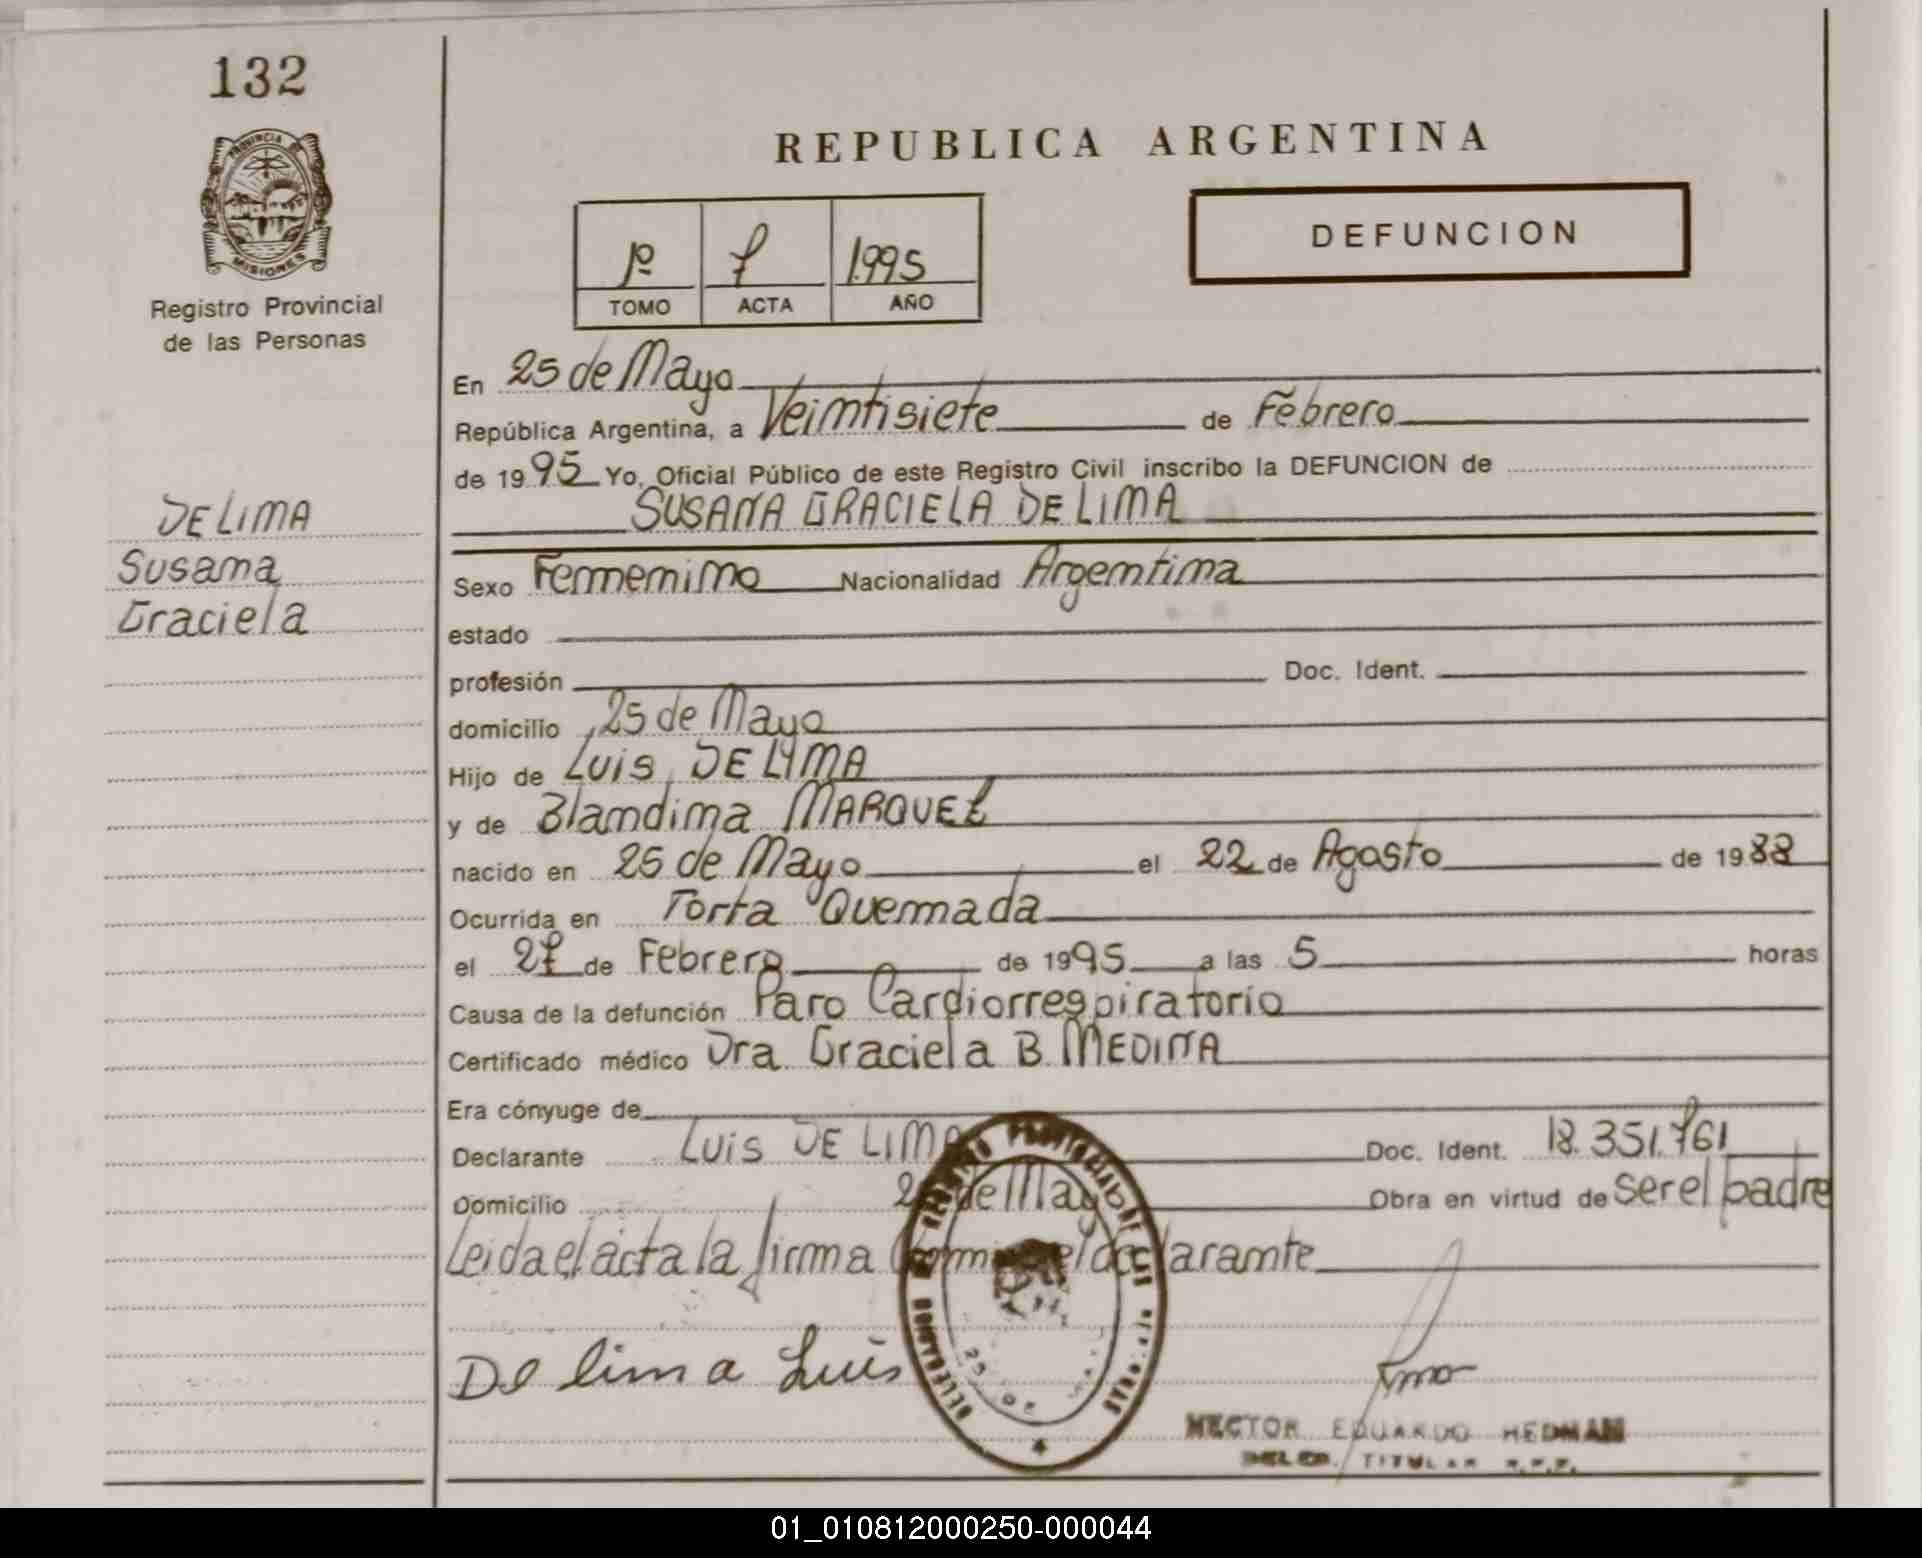 132
PROVINCIA DE
MISIONES
Registro Provincial
de las Personas
DE LIMA
Susana
Graciela
REPUBLICA ARGENTINA
1º 7 1.995
TOMO ACTA AÑO
DEFUNCION
En 25 de Mayo
República Argentina, a Veintisiete de Febrero
de 1995 Yo, Oficial Público de este Registro Civil inscribo la DEFUNCION de
SUSANA GRACIELA DE LIMA
Sexo Femenino Nacionalidad Argentina
estado
profesión Doc. Ident.
domicilio 25 de Mayo
Hijo de Luis DE LIMA
y de Blandina MARQUEZ
nacido en 25 de Mayo el 22 de Agosto de 1988
Ocurrida en Torta Quemada
el 27 de Febrero de 1995 a las 5 horas
Causa de la defunción Paro Cardiorrespiratorio
Certificado médico Dra. Graciela B. MEDINA
Era cónyuge de
Declarante Luis DE LIMA Doc. Ident. 18.351.761
Domicilio 25 de Mayo Obra en virtud de ser el padre
Leida el acta la firma conmigo el declarante
De lima Luis
HECTOR EDUARDO HEDMAN
DELEG. TITULAR R.P.P.
01_010812000250-000044